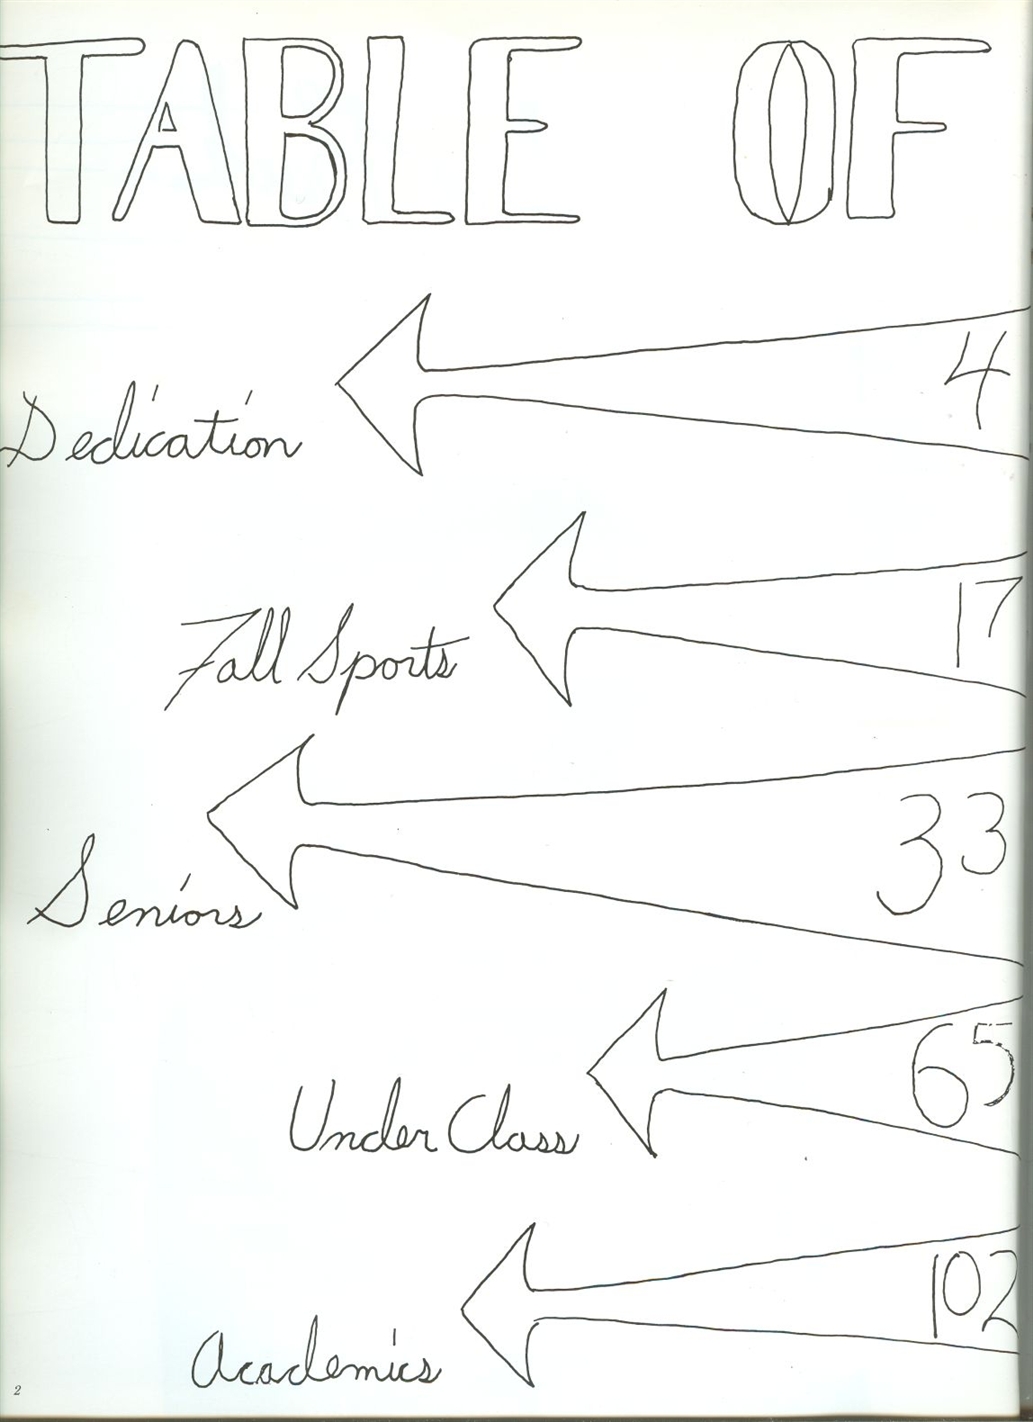 TABLE OF
4
Dedication
17
Fall Sports
33
Seniors
65
Under Class
102
Academics
2